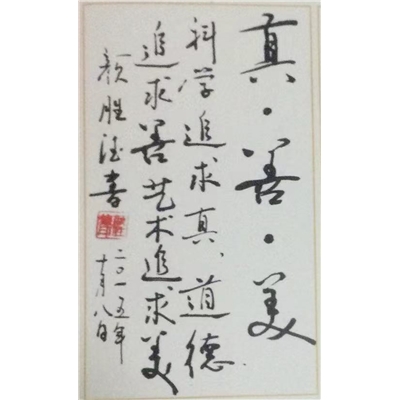 真·善·美
科学追求真、道德
追求善艺术追求美
颜胜德书
二〇一五年
十月八日